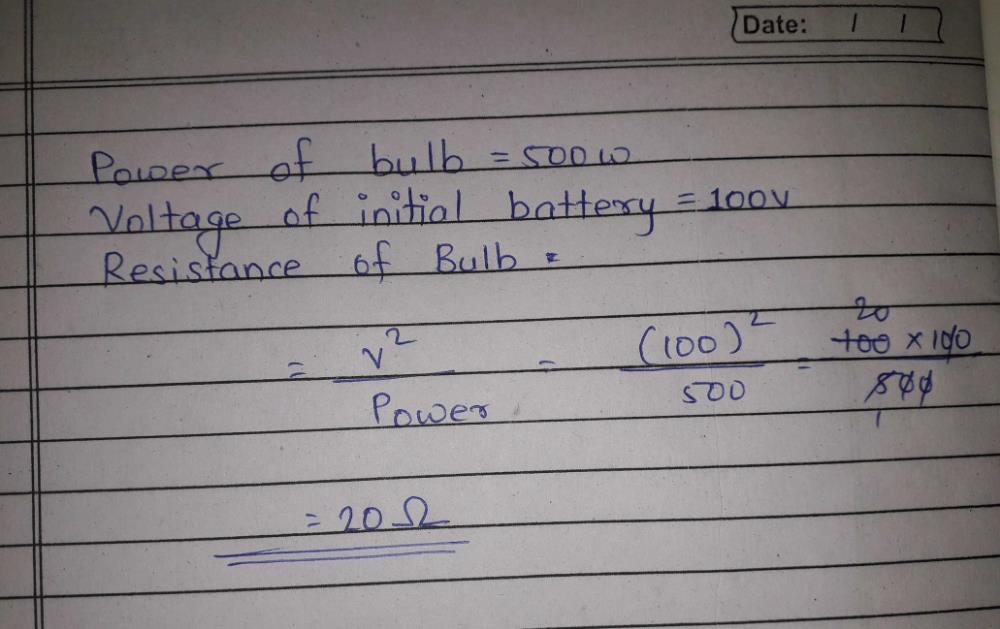 Date: / /
Power of bulb = 500 W
Voltage of initial battery = 100V
Resistance of Bulb =
= V² / Power = (100)² / 500 = 20 100 × 100 / 500 1
= 20 Ω